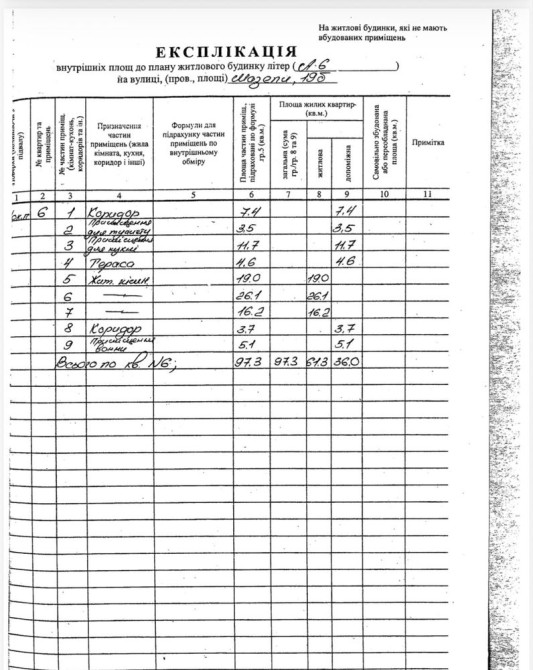 На житлові будинки, які не мають
вбудованих приміщень
ЕКСПЛІКАЦІЯ
внутрішніх площ до плану житлового будинку літер ( А-6 )
на вулиці, (пров., площі) Мазепи, 19б
підвалу)
№ квартир та приміщень
№ частин приміщ. (кімнат-кухонь, коридорів та ін.)
Призначення частин приміщень (жила кімната, кухня, коридор і інші)
Формули для підрахунку частин приміщень по внутрішньому обміру
Площа частин приміщ., підраховані по формулі гр.5 (кв.м.)
Площа жилих квартир- (кв.м.)
загальна (сума гр./гр. 8 та 9)
житлова
допоміжна
Самовільно збудована або переобладнана площа (кв.м)
Примітка
1 2 3 4 5 6 7 8 9 10 11
6 1 Коридор 7.4 7.4
2 Приміщення для туалету 3,5 3,5
3 Приміщення для кухні 11,7 11,7
4 Тераса 4.6 4.6
5 Жит. кімн. 19.0 19.0
6 —— 26.1 26.1
7 —— 16.2 16.2
8 Коридор 3,7 3,7
9 Приміщення ванни 5.1 5.1
Всього по кв. №6; 97.3 97.3 61.3 36.0